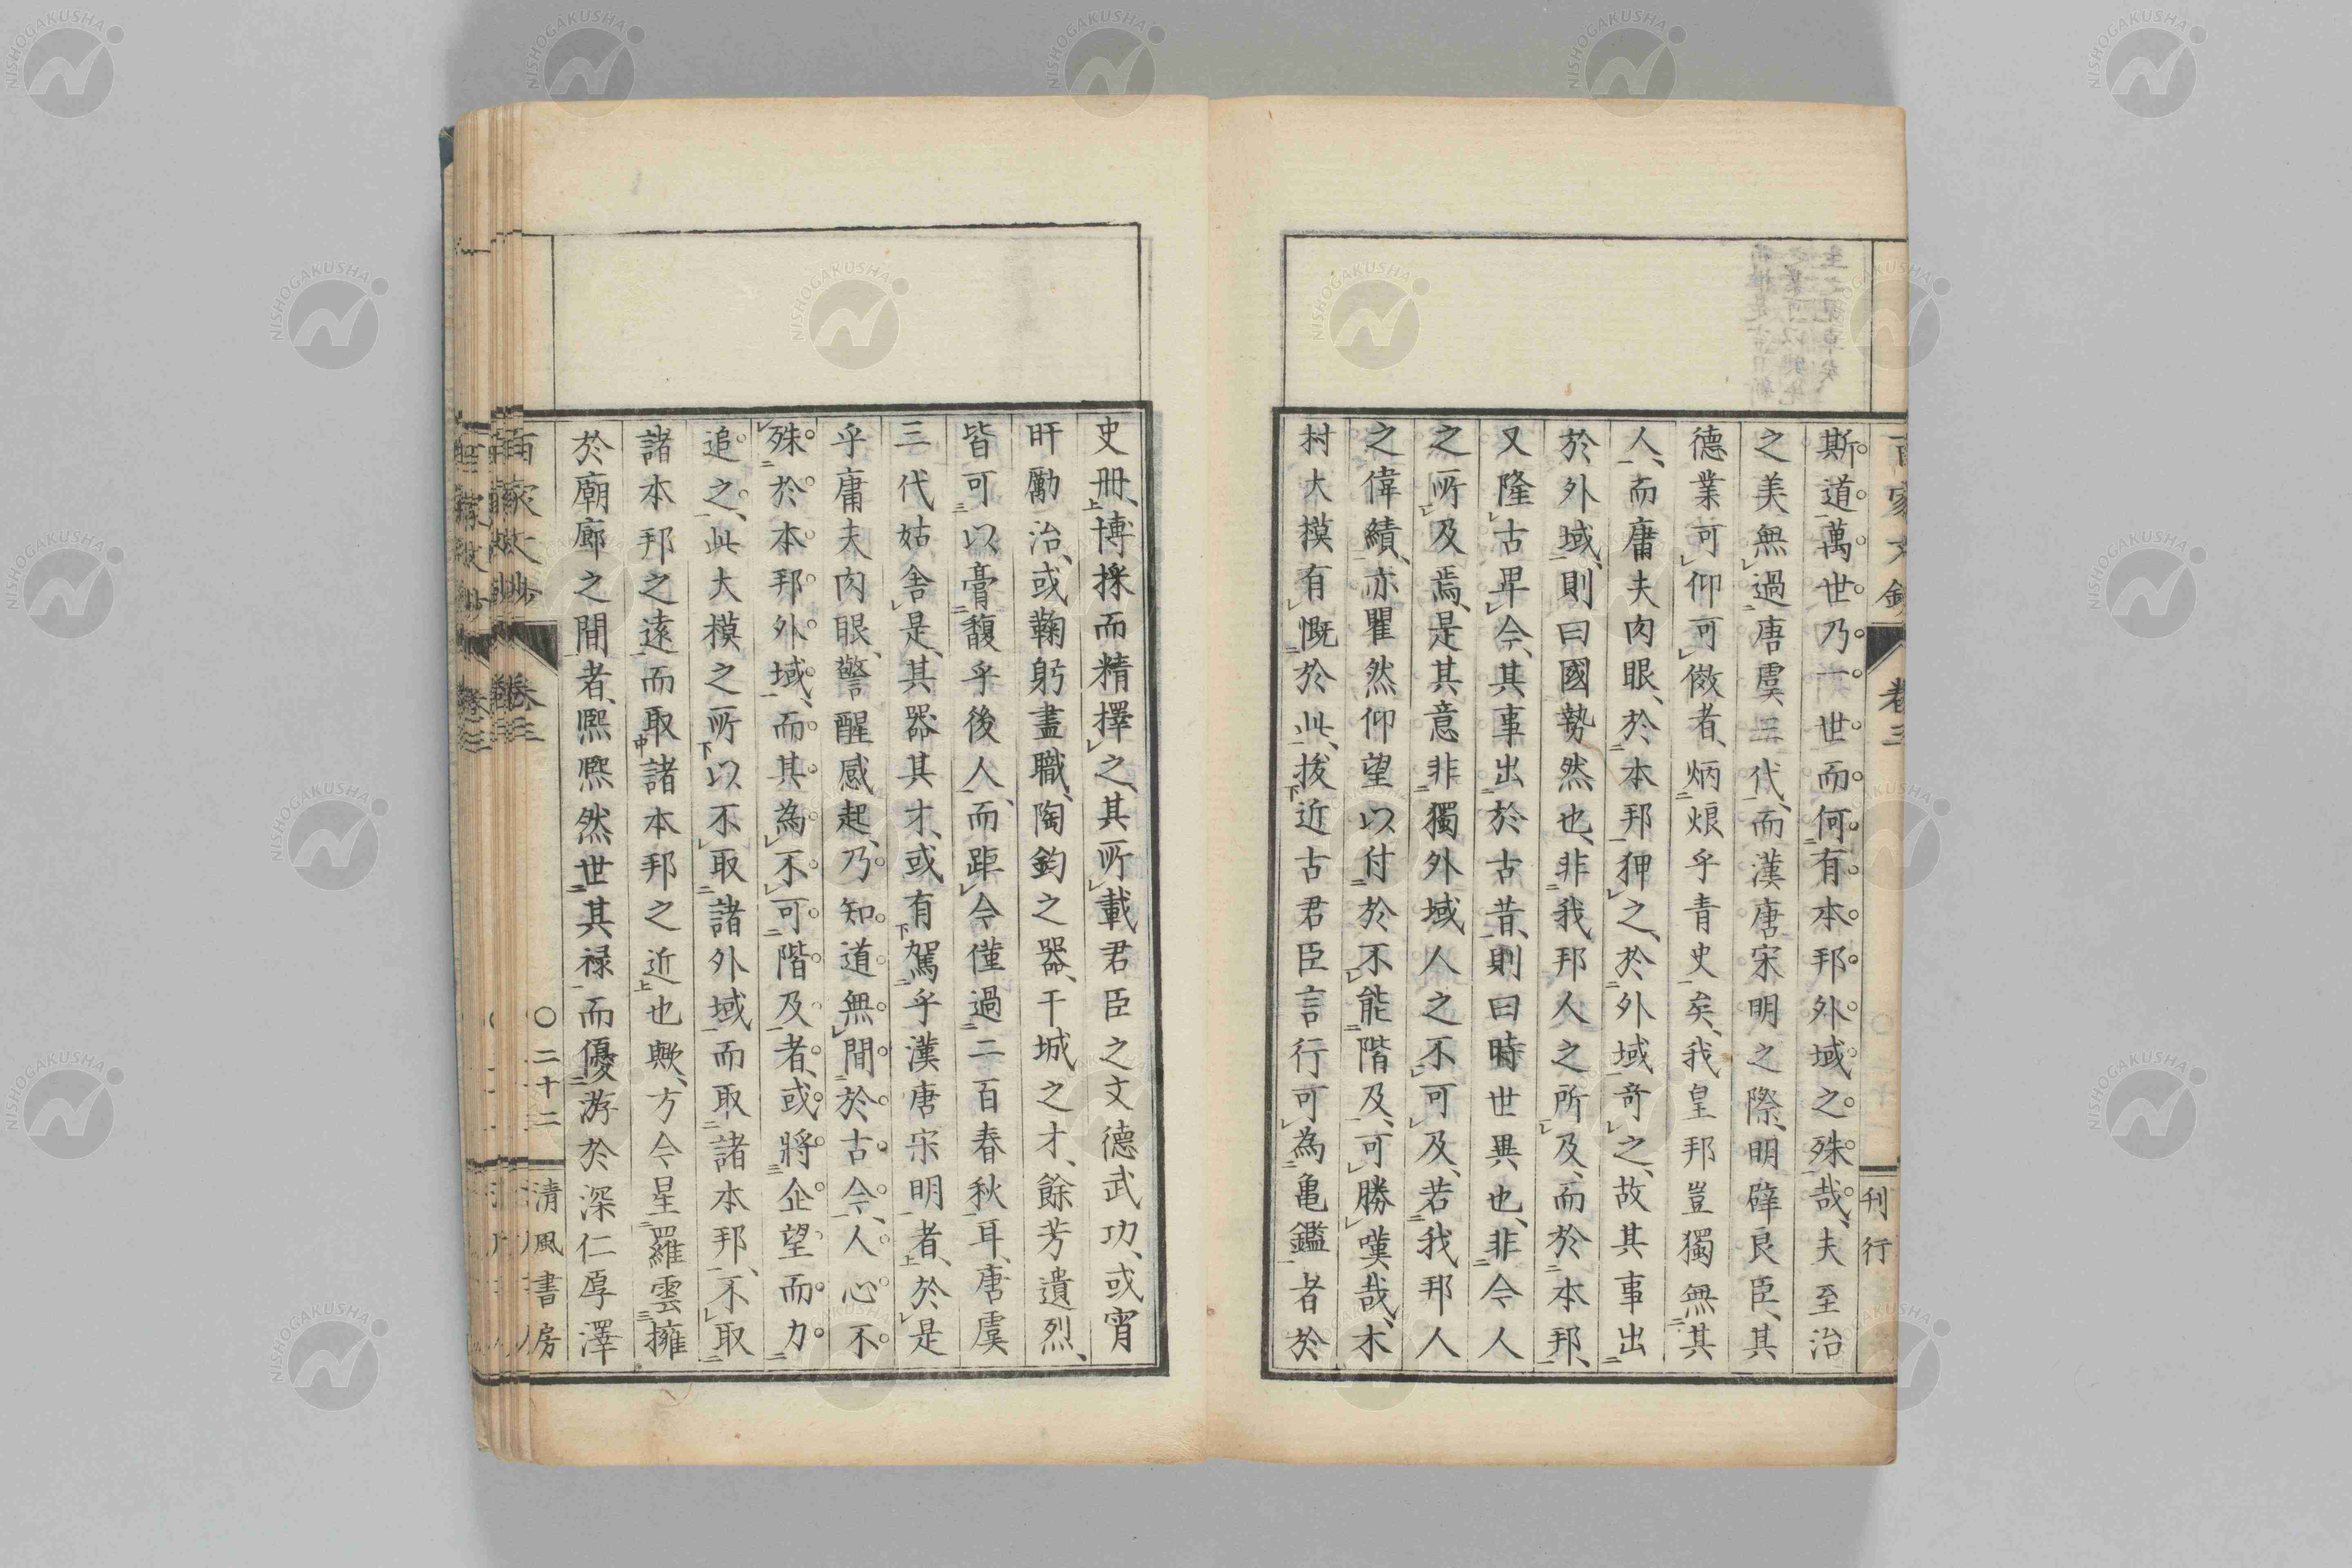 斯道萬世乃一世而何有本邦外域之殊哉、夫至治
之美無過唐虞三代、而漢唐宋明之際、明辟良臣、其
德業可仰可儆者、炳烺乎青史矣、我皇邦豈獨無其
人、而庸夫肉眼、於本邦狎之、於外域奇之、故其事出
於外域、則曰國勢然也、非我邦人之所及、而於本邦、
又隆古卑今、其事出於古昔、則曰時世異也、非今人
之所及焉、是其意非獨外域人之不可及、若我邦人
之偉績、亦瞿然仰望以付於不能階及、可勝嘆哉、木
村大模有慨於此、拔近古君臣言行可為龜鑑者於
史册、博採而精擇之、其所載君臣之文德武功、或宵
旰勵治、或鞠躬盡職、陶鈞之器、干城之才、餘芳遺烈、
皆可以膏馥乎後人、而距今僅過二百春秋耳、唐虞
三代姑舍是、其器其才、或有駕乎漢唐宋明者、於是
乎庸夫肉眼、警醒感起、乃知道無間於古今、人心不
殊於本邦外域、而其為不可階及者、或將企望而力
追之、此大模之所以不取諸外域而取諸本邦、不取
諸本邦之遠而取諸本邦之近也歟、方今星羅雲擁
於廟廊之間者、熙熙然世其祿而優游於深仁厚澤
卷三
刊行
二十二
清風書房
NISHOGAKUSHA